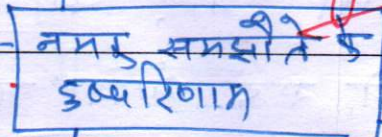 नमक समझौते के
दुष्परिणाम